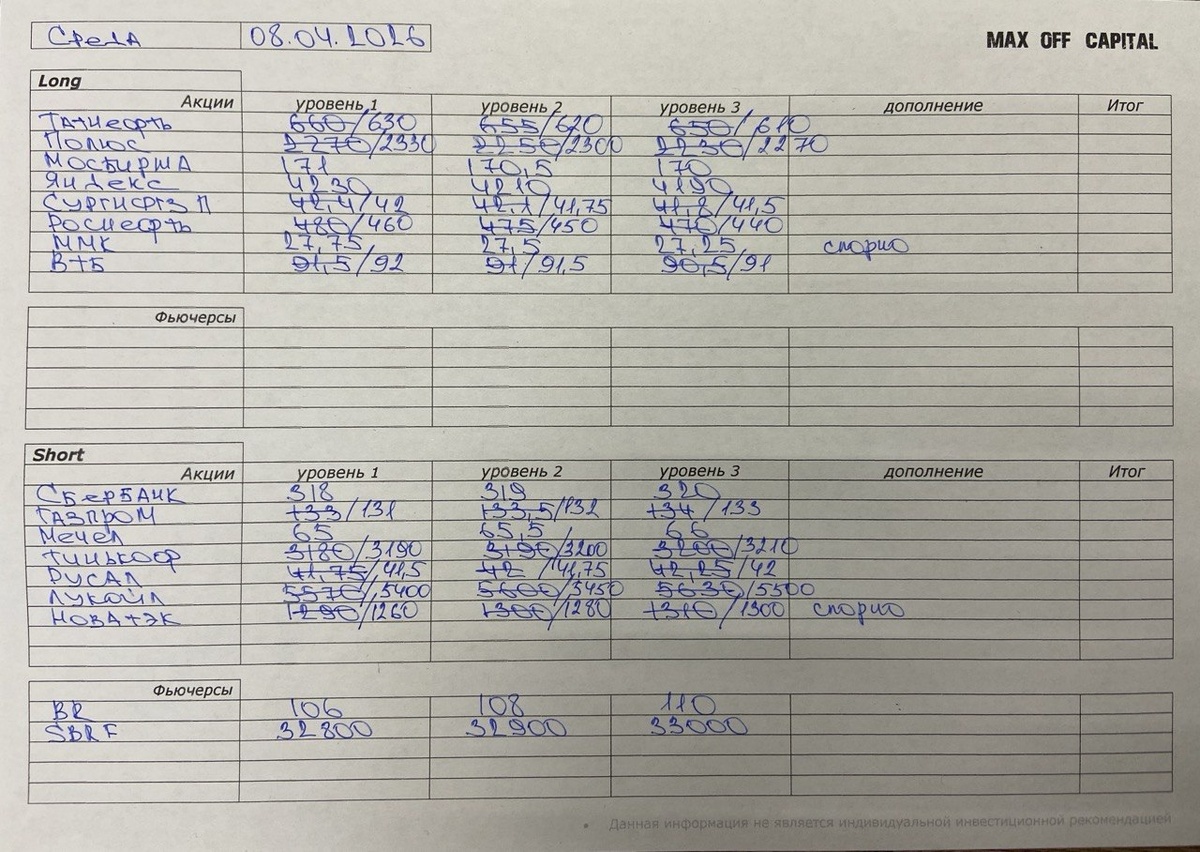 Среда 08.04.2026 MAX OFF CAPITAL
Long
Акции уровень 1 уровень 2 уровень 3 дополнение Итог
Татнефть 660/630 655/620 650/610
Полюс 2270/2330 2250/2300 2230/2270
Мосбиржа 171 170,5 170
Яндекс 4230 4210 4190
Сургнфгз П 42,4/42 42,1/41,75 41,8/41,5
Роснефть 480/460 475/450 470/440
ММК 27,75 27,5 27,25 спорно
ВТБ 91,5/92 91/91,5 90,5/91
Фьючерсы
Short
Акции уровень 1 уровень 2 уровень 3 дополнение Итог
Сбербанк 318 319 320
Газпром 133/131 133,5/132 134/133
Мечел 65 65,5 66
Тинькофф 3180/3190 3190/3200 3200/3210
Русал 41,75/41,5 42/41,75 42,25/42
Лукойл 5570/5400 5600/5450 5630/5500
Новатэк 1290/1260 1300/1280 1310/1300 спорно
Фьючерсы
BR 106 108 110
SBRF 32800 32900 33000
Данная информация не является индивидуальной инвестиционной рекомендацией